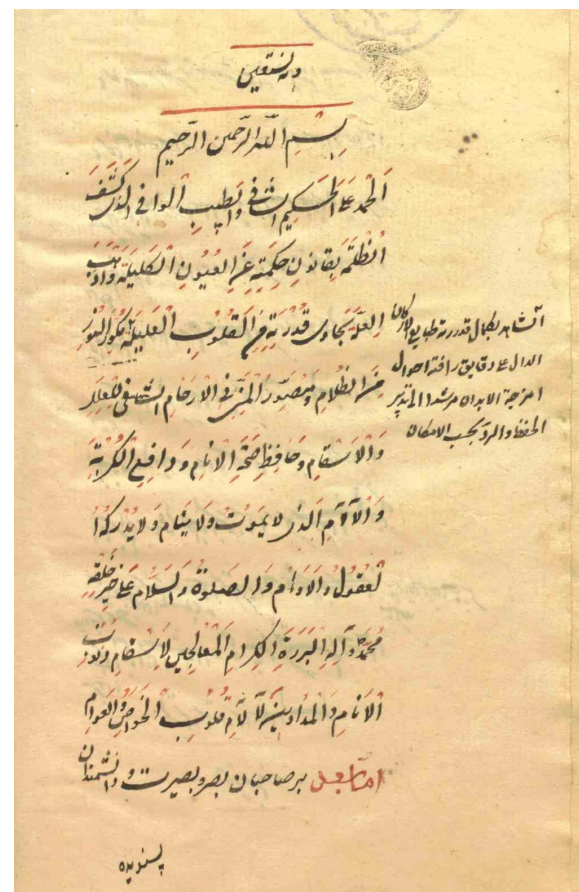 وبه نستعین
بسم الله الرحمن الرحیم
الحمد علی الحکیم الشافی والطبیب الوافی الذی کشف
الظلمة بقانون حکمته عن العیون الکلیلة واذهب
العلة بحاوی قدرته من القلوب العلیلة مکور النور
من الظلام ومصور المنی فی الارحام الشافی للعلل
والاسقام وحافظ صحة الانام ودافع الکربة
والآلام الذی لا یموت ولا ینام ولا یدرکه ا
لعقول والاوهام والصلوة والسلام علی خیر خلقه
محمد وآله البررة الکرام المعالجین لاسقام ذنوب
الانام والمداوین لآلام قلوب الخواص والعوام
اما بعد بر صاحبان بصر و بصیرت و دانشمندان
پسندیده
الشاهد بکمال قدرته طبایع الارکان
الدال علی دقایق رافته احوال
امزجة الابدان مرشدا الی تدبیر
الحفظ والرد بحسب الامکان